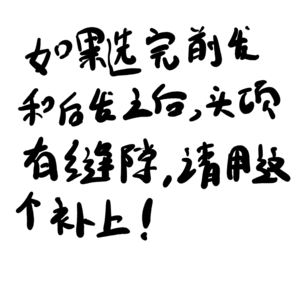 如果选完前发
和后发之后,头顶
有缝隙,请用这
个补上!